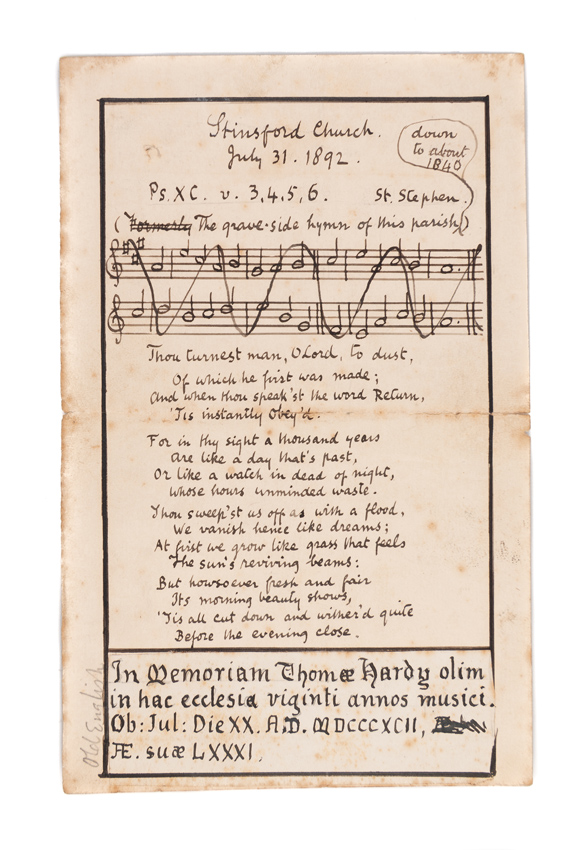 Stinsford Church.
July 31. 1892.
down
to about
1840
Ps. XC. v. 3, 4, 5, 6. St. Stephen.
(Formerly The grave-side hymn of this parish)
Thou turnest man, O Lord, to dust,
Of which he first was made;
And when thou speak'st the word Return,
'Tis instantly Obey'd.
For in thy sight a thousand years
are like a day that's past,
Or like a watch in dead of night,
whose hours unminded waste.
Thou sweep'st us off as with a flood,
We vanish hence like dreams;
At first we grow like grass that feels
The sun's reviving beams:
But howsoever fresh and fair
Its morning beauty shows,
'Tis all cut down and wither'd quite
Before the evening close.
In Memoriam Thomæ Hardy olim
in hac ecclesia viginti annos musici.
Ob: Jul: Die XX. A.D. MDCCCXCII,
Æ. suæ LXXXI.
Old English